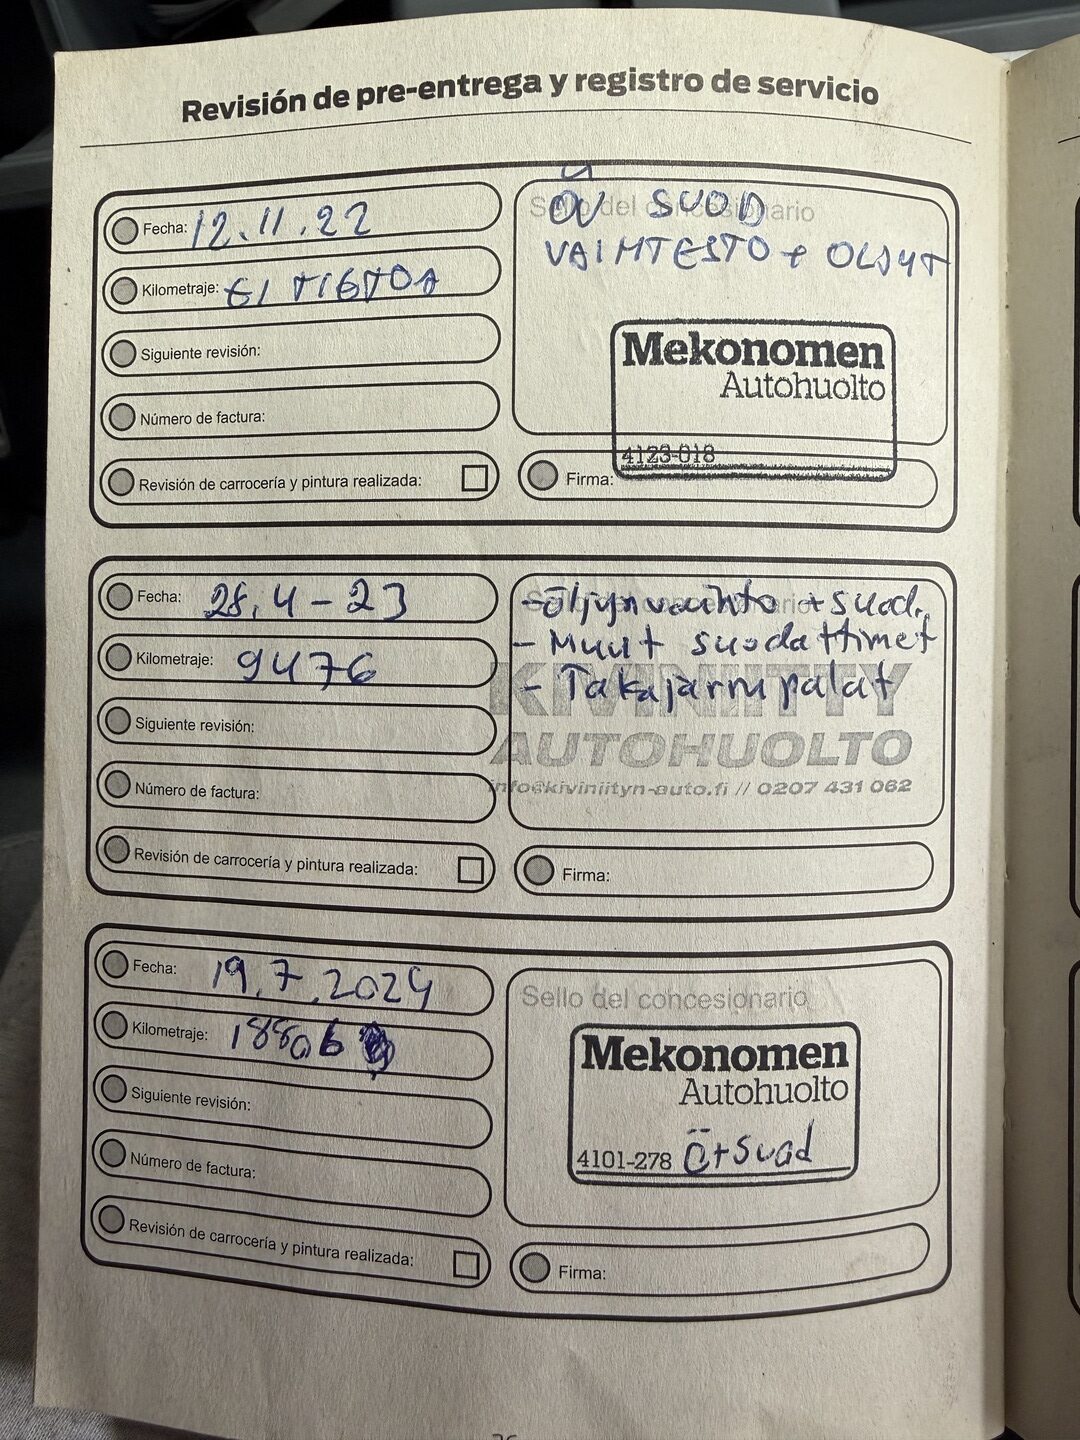 Revisión de pre-entrega y registro de servicio
Fecha: 12.11.22
Kilometraje: EI TIETOA
Siguiente revisión:
Número de factura:
Revisión de carrocería y pintura realizada:
Sello del concesionario
SUOD
VAIHTESTO + OLJYT
Mekonomen
Autohuolto
4123-018
Firma:
Fecha: 28.4-23
Kilometraje: 9476
Siguiente revisión:
Número de factura:
Revisión de carrocería y pintura realizada:
-öljynvaihto + suod.
- Muut suodattimet
- Takajarrupalat
KIVINIITTY
AUTOHUOLTO
info@kiviniityn-auto.fi // 0207 431 062
Firma:
Fecha: 19.7.2024
Kilometraje: 18806
Siguiente revisión:
Número de factura:
Revisión de carrocería y pintura realizada:
Sello del concesionario
Mekonomen
Autohuolto
4101-278 Ö+suod
Firma: